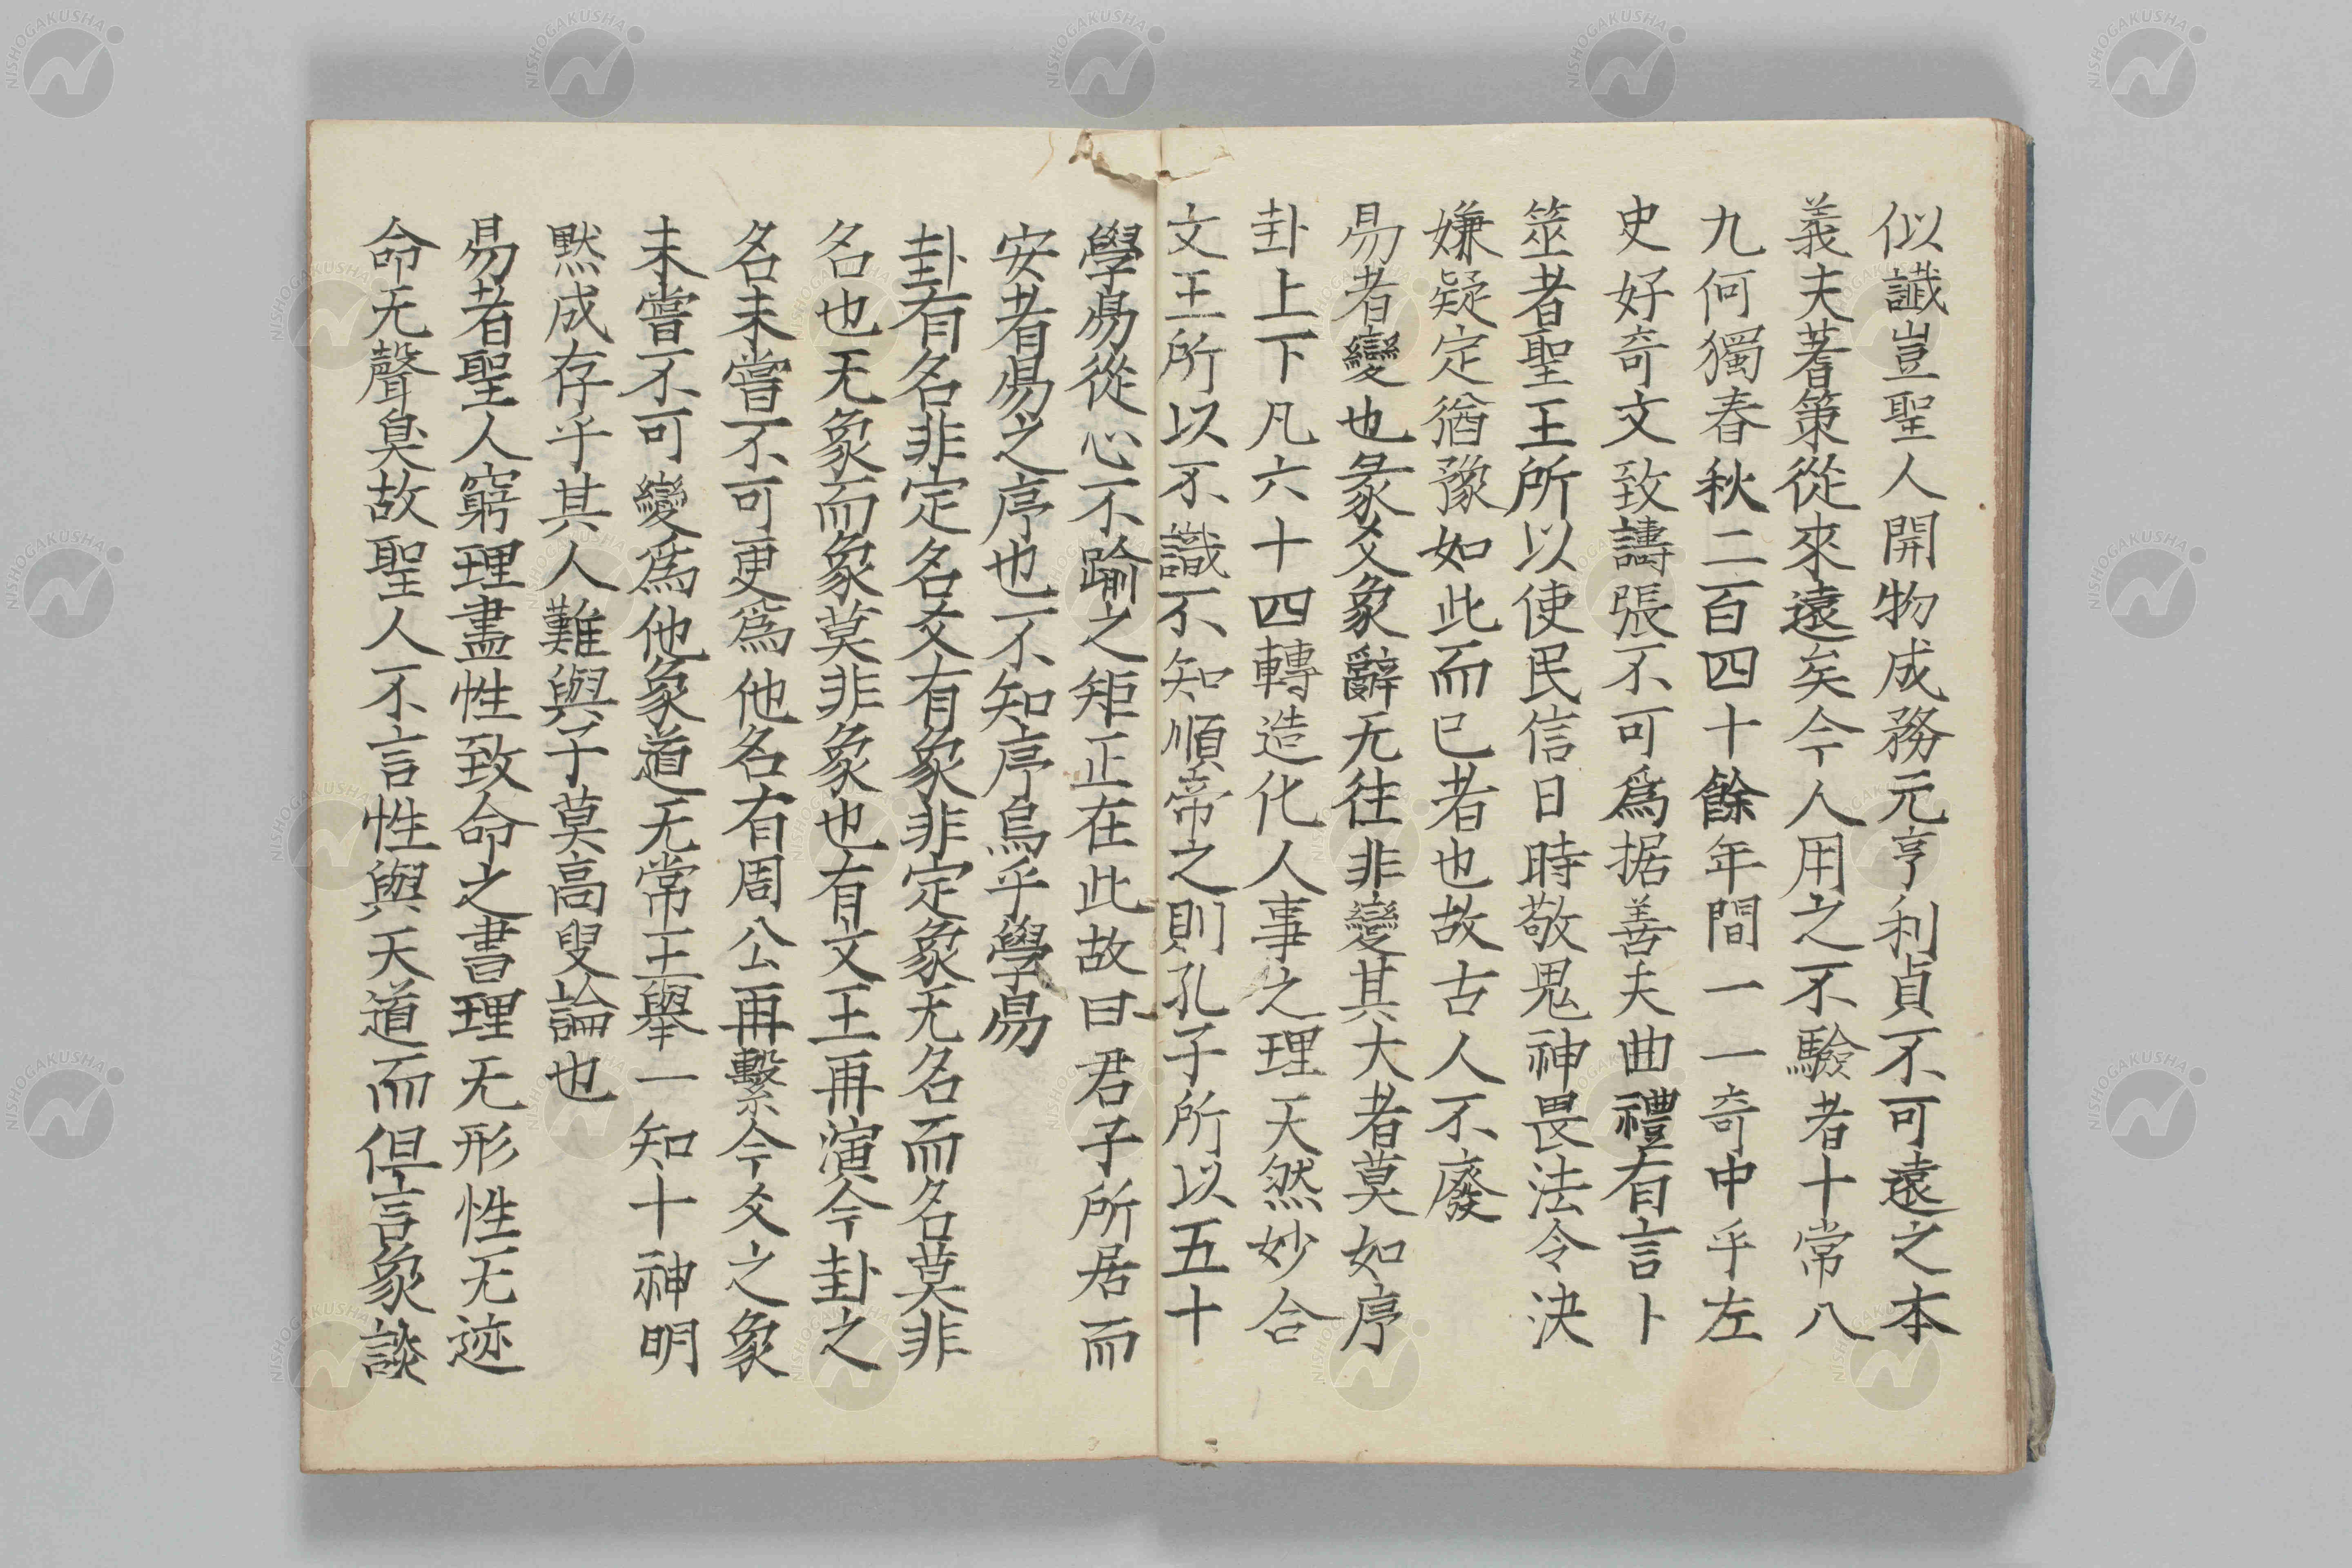 似讖豈聖人開物成務元亨利貞不可遠之本
義夫蓍策從來遠矣今人用之不驗者十常八
九何獨春秋二百四十餘年間一一奇中乎左
史好奇文致譸張不可爲据善夫曲禮有言卜
筮者聖王所以使民信日時敬鬼神畏法令決
嫌疑定猶豫如此而已者也故古人不廢
易者變也彖爻象辭无往非變其大者莫如序
卦上下凡六十四轉造化人事之理天然妙合
文王所以不識不知順帝之則孔子所以五十
學易從心不踰之矩正在此故曰君子所居而
安者易之序也不知序烏乎學易
卦有名非定名爻有象非定象无名而名莫非
名也无象而象莫非象也有文王再演今卦之
名未嘗不可更爲他名有周公再繫今爻之象
未嘗不可變爲他象道无常主舉一知十神明
黙成存乎其人難與子莫高叟論也
易者聖人窮理盡性致命之書理无形性无迹
命无聲臭故聖人不言性與天道而但言象談
NISHOGAKUSHA